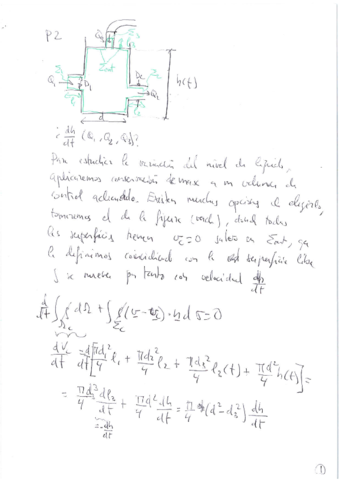 P2
Q3
Σ3
Σsat
Σ1
Σ2
Q1
D1
D2
Q2
h(t)
d
¿ dh/dt (Q1, Q2, Q3)?
Para estudiar la variación del nivel de líquido,
aplicaremos conservación de masa a un volumen de
control adecuado. Existen muchas opciones de elegirlo,
tomaremos el de la figura (verde), donde todas
las superficies tienen vc=0 salvo en Σsat, ya
la definimos coincidiendo con la superficie libre
y se mueve por tanto con velocidad dh/dt
d/dt ∫Ωc ρ dΩ + ∫Σc ρ(v - vc)·n dσ = 0
dVc/dt = d/dt [πd1²/4 l1 + πd2²/4 l2 + πd3²/4 l3(t) + πd²/4 h(t)] =
= πd3²/4 dl3/dt + πd²/4 dh/dt = π/4 (d² - d3²) dh/dt
= -dh/dt
1